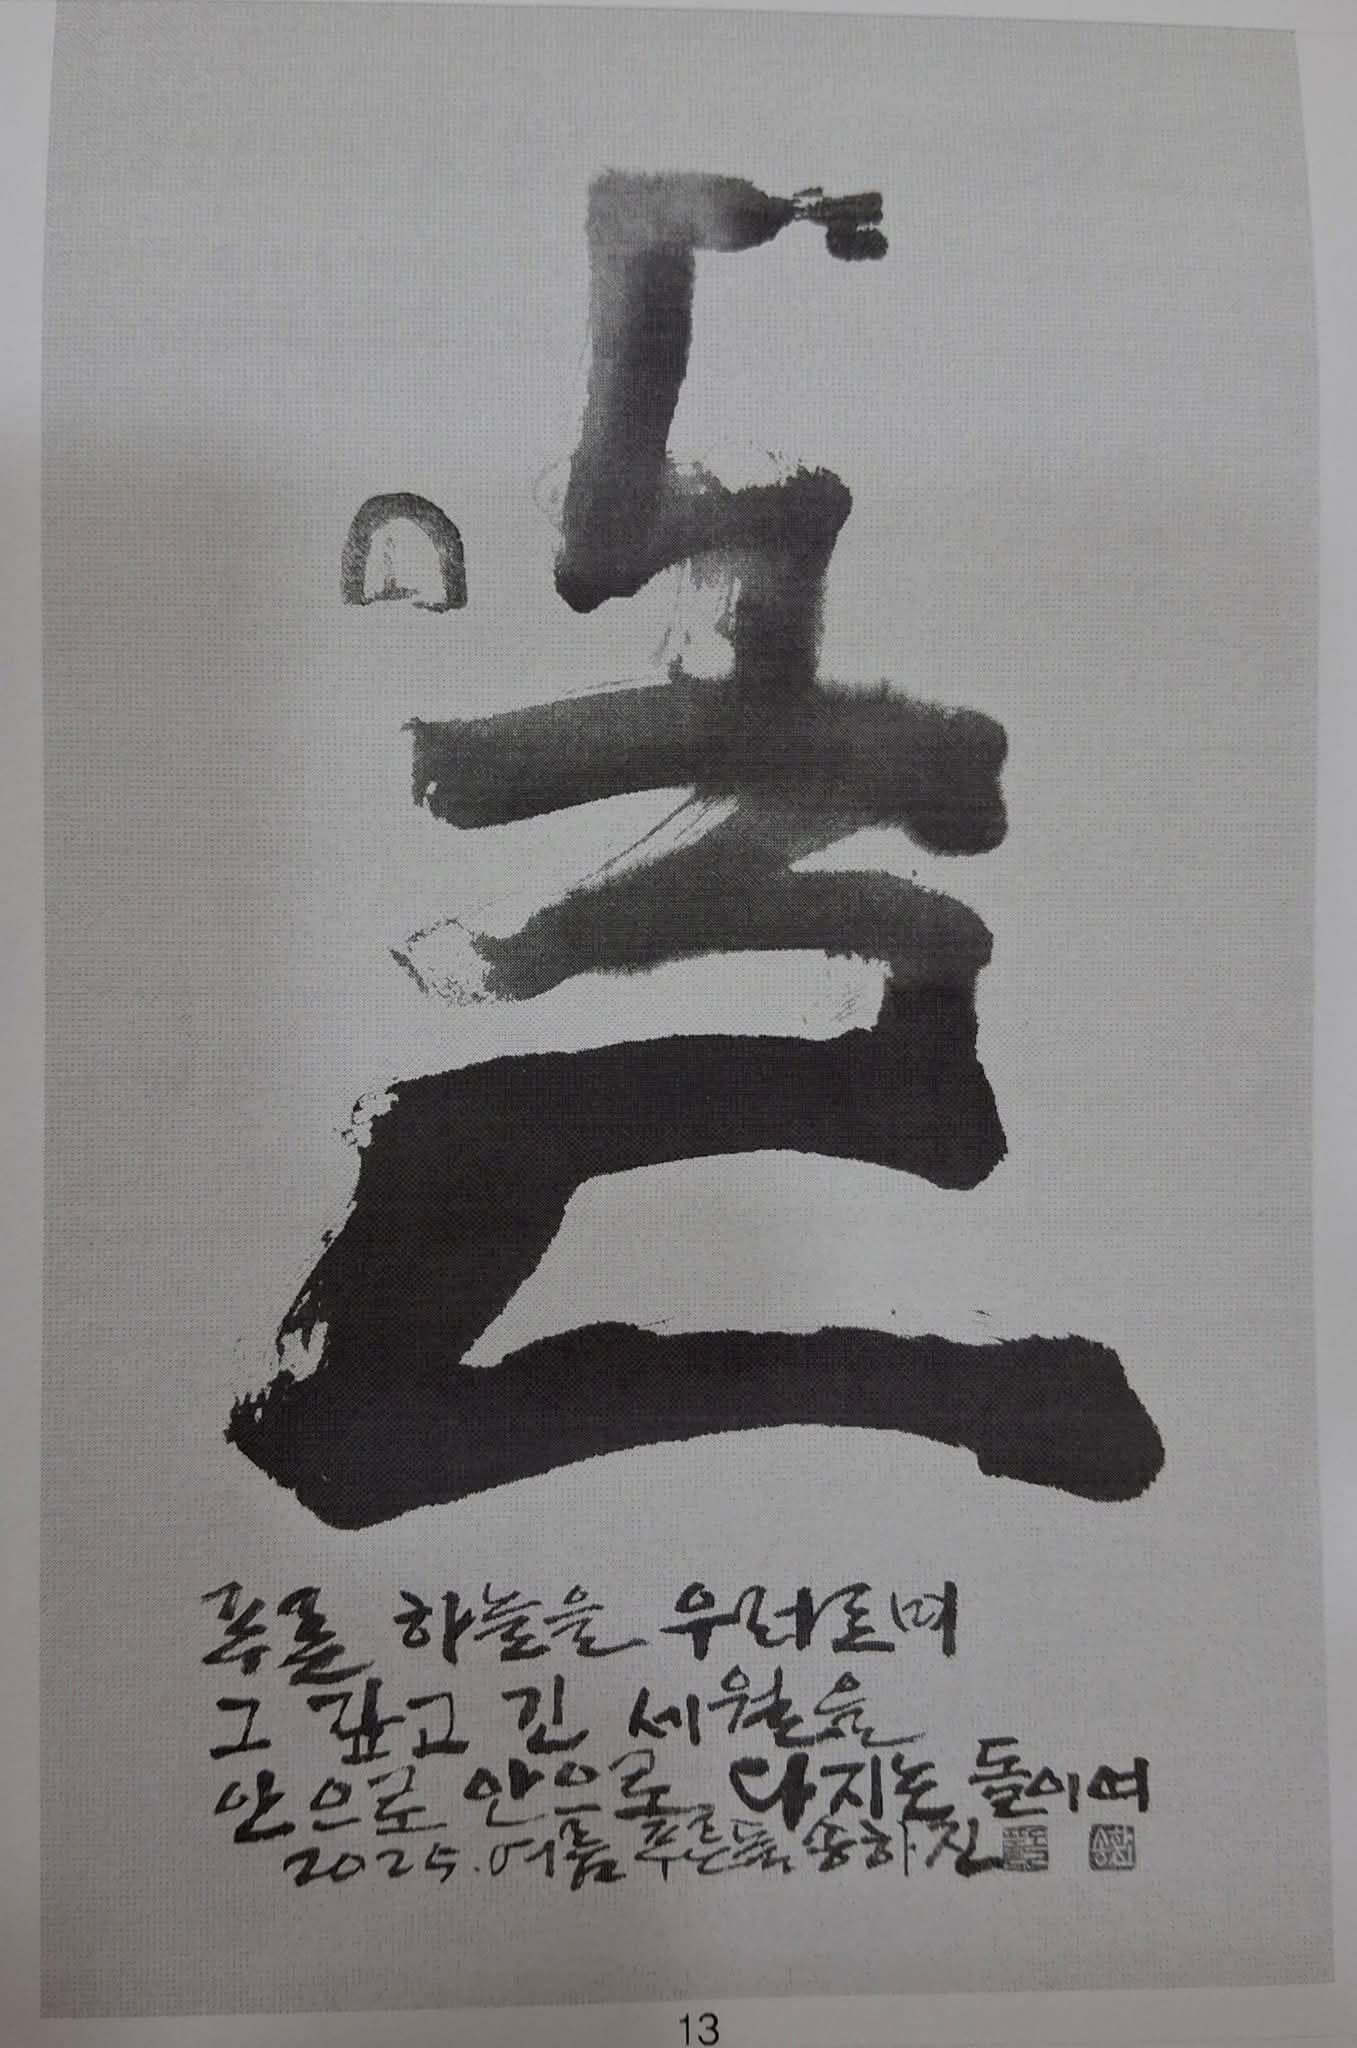 돌
푸른 하늘을 우러르며
그 깊고 긴 세월을
안으로 안으로 다지는 돌이여
2025. 여름 푸른돌 송하진
13